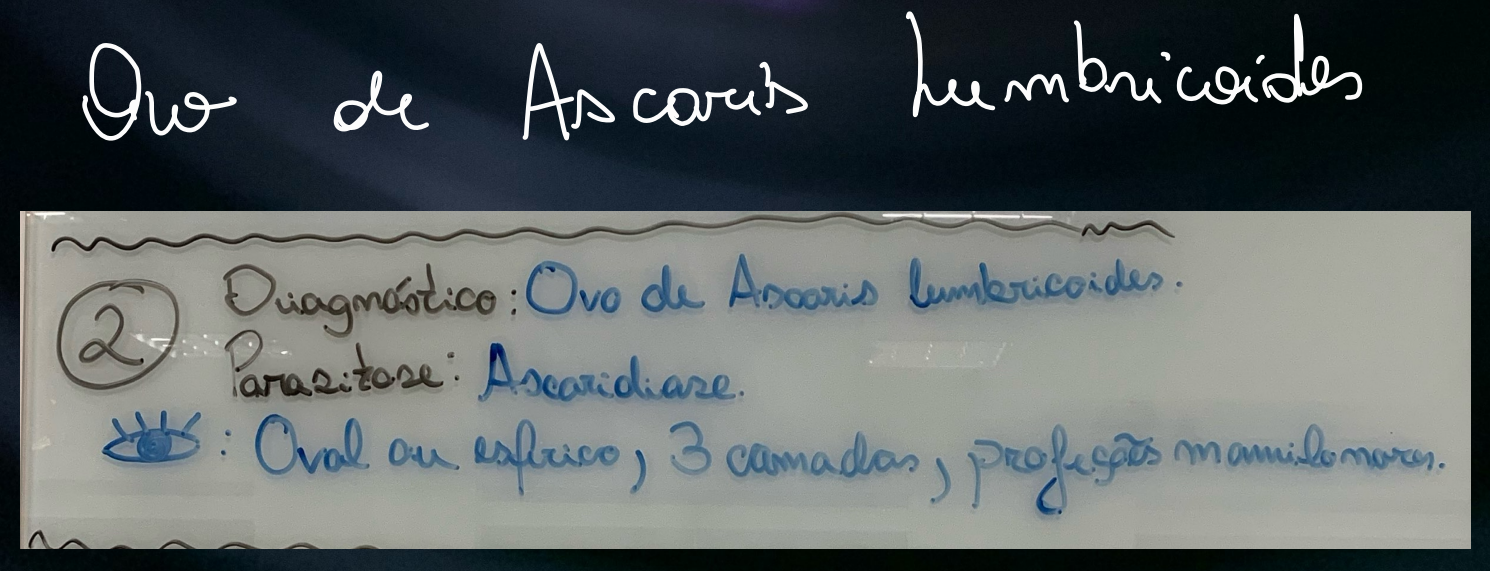 Ovo de Ascaris Lumbricoides
2 Diagnóstico: Ovo de Ascaris lumbricoides.
Parasitose: Ascaridiase.
: Oval ou esférico, 3 camadas, projeções mamilonares.